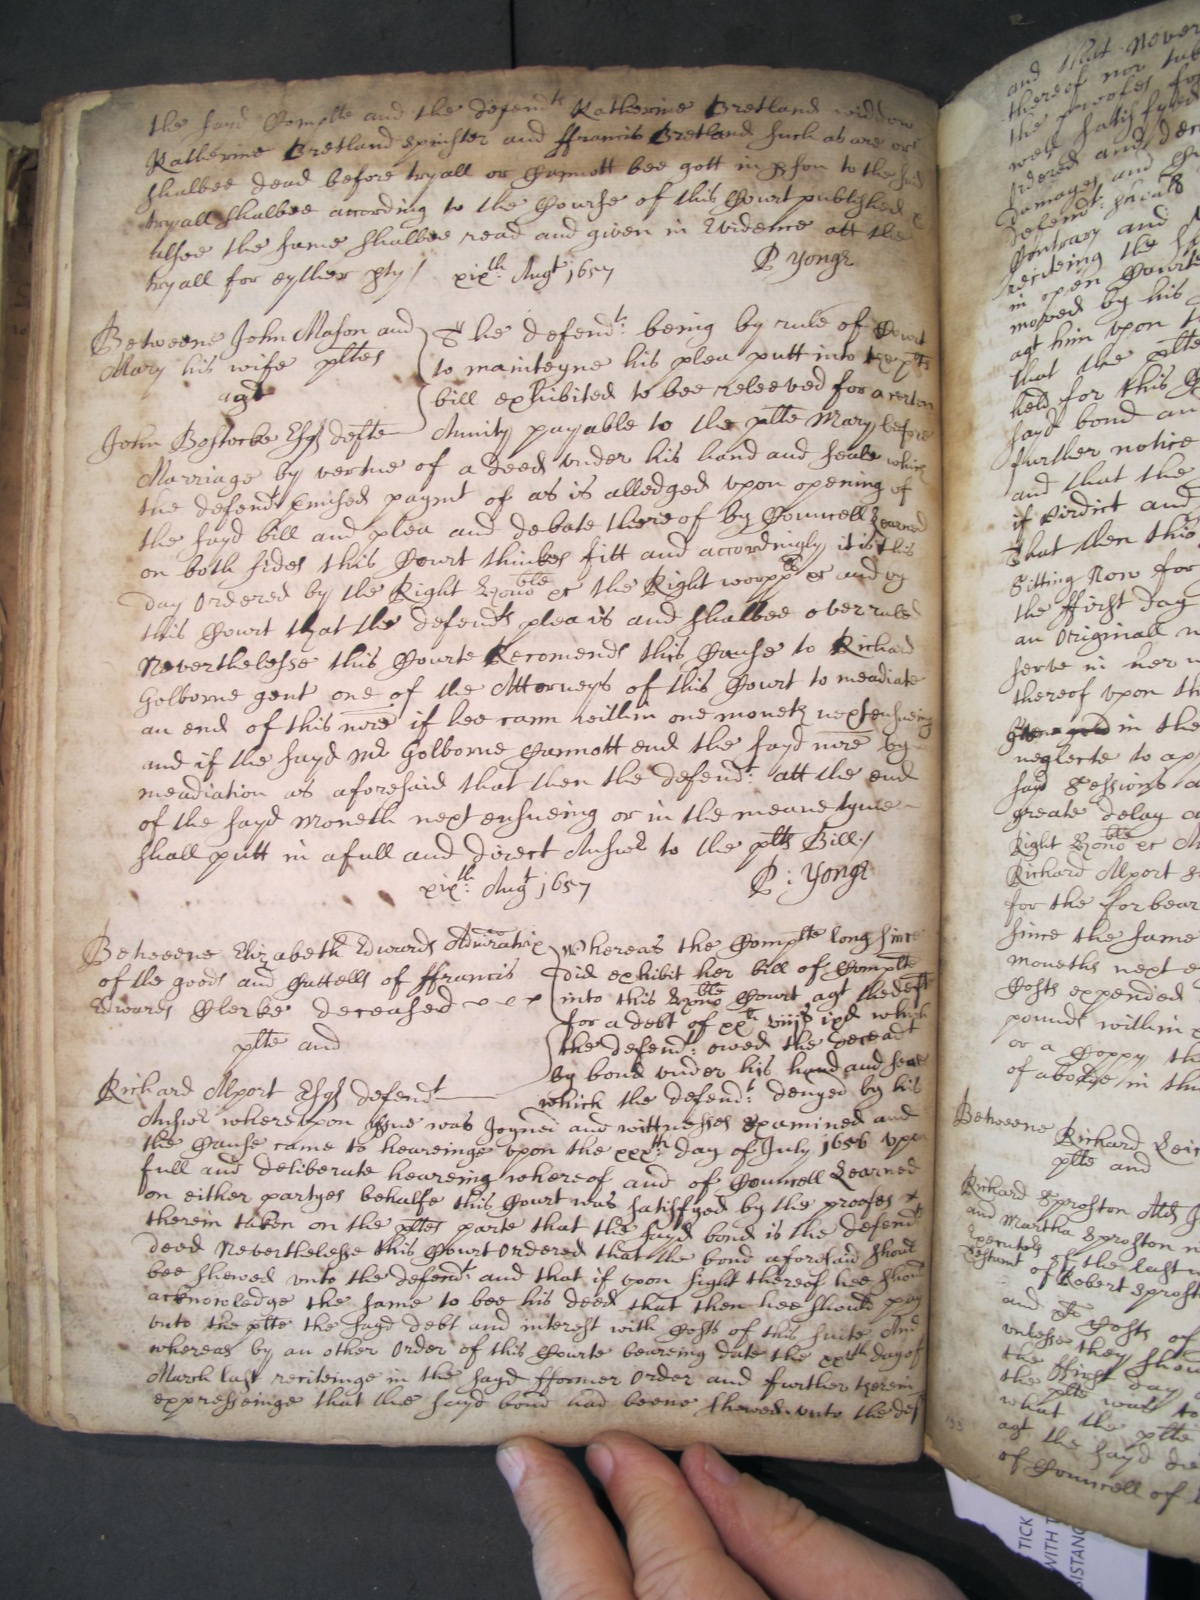 the sayd Complte and the defendts Katherine Bretland widdow
Katherine Bretland spinster and ffrancis Bretland such as are or
shalbee dead before tryall or Cannott bee gott in pson to the said
tryall shalbee according to the Course of this Court published &
alsoe the same shalbee read and given in Evidence att the
tryall for eyther pty / xixth: Augt 1657 P Yonge
Betweene John Mason and
Mary his wife pltes
agt
John Bostocke Esqr defte
The defendt: being by rule of Court
to mainteyne his plea putt into the plts
bill exhibited to bee releeved for a certen
Anuity payable to the plte Mary before
Marriage by vertue of a deed under his hand and seale which
the defendt pmised paymt of as is alledged upon opening of
the sayd bill and plea and debate thereof by Councell Learned
on both sides this Court thinkes fitt and accordingly it is this
day Ordered by the Right Honoble &c the Right worppll &c and by
this Court that the defendts plea is and shalbee over ruled
Neverthelesse this Courte Recomends this Cause to Richard
Golborne gent one of the Attorneys of this Court to meadiate
an end of this mre if hee cann within one moneth next ensueing
and if the sayd Mr Golborne Cannott end the sayd mre by
meadiation as aforesaid that then the defendt: att the end
of the sayd Moneth next ensueing or in the meane tyme
shall putt in a full and direct Answer to the plts Bill /
xixth: Augt 1657 P: Yonge
Betweene Elizabeth Edwards Admratrix
of the goods and Cattells of ffrancis
Edwards Clerke deceased
plte and
Richard Alport Esqr defendt
Whereas the Complte long since
did exhibit her bill of Complte
into this Honoble Court agt the deft
for a debt of xxli viijs ixd which
the defendt: owed the deceadt
by bond under his hand and seale
which the defendt: denyed by his
Answer whereupon Issue was Joyned and wittnesses Examined and
the Cause came to heareinge upon the xxxth: day of July 1656 upon
full and deliberate heareing whereof and of Councell Learned
on either partyes behalfe this Court was satisfyed by the proofes
therein taken on the pltes parte that the sayd bond is the defendts
deed Neverthelesse this Court Ordered that the bond aforesaid should
bee shewed unto the defendt: and that if upon sight thereof hee should
acknowledge the same to bee his deed that then hee should pay
unto the plte the sayd debt and interest with Costs of this suite And
whereas by an other Order of this Courte beareing date the xxth day of
March last reciteinge in the sayd fformer Order and further therein
expresseinge that the sayd bond had beene shewed unto the def
and that Never
thereof nor
the proofes for
well satisfyed
Ordered and dec
Damages and
defendt: should
Contrary and
reciteing the
in open Courte
moved by his
agt him upon
that the plte
held for this
sayd bond an
further notice
and that the
if Virdict and
That then this
Sitting Now for
the ffirst day
an Originall
serve in her
thereof upon the
in the
neglecte to ap
sayd Sessions
greate delay
Right Honoble &c
Richard Alport
for the forbear
since the same
moneths next
Costs expended
pounds within
or a Coppy the
of abode in
Betweene Richard
plte and
Richard Sproston
and Martha Sproston
Executors of the last
Testamt of Robert Sprost
and Costs of
unlesse they should
the ffirst day
the plte was to
what the plte
agt the sayd
of Councell of
TICK
WITH T
SISTANC